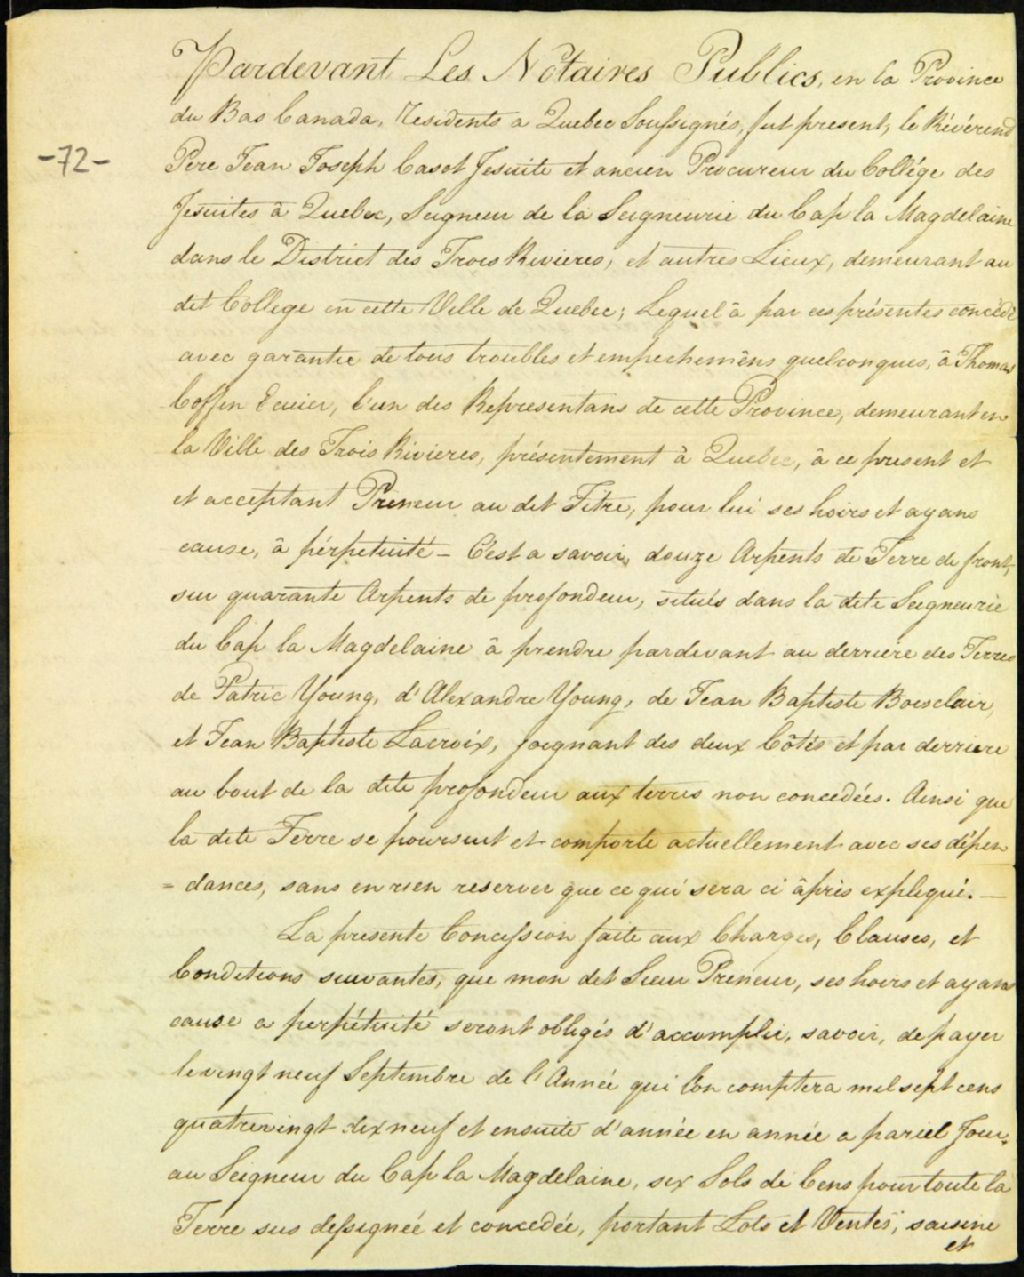 Pardevant Les Notaires Publics, en la Province
du Bas Canada, Residents a Quebec Soussignés, fut present, le Révérend
-72-
Pere Jean Joseph Casot Jesuite et ancien Procureur du Collége des
Jesuites à Quebec, Seigneur de la Seigneurie du Cap la Magdelaine
dans le District des Trois Rivieres, et autres Lieux, demeurant au
dit College en cette Ville de Quebec; Lequel à par ces présentes concédé
avec garantie de tous troubles et empechemêns quelconques, à Thomas
Coffin Ecuier, l'un des Representans de cette Province, demeurant en
la Ville des Trois Rivieres, présentement à Quebec, à ce present et
et acceptant Preneur au dit Titre, pour lui ses hoirs et ayans
cause, à pérpetuité - C'est a savoir, douze Arpents de Terre de front,
sur quarante Arpents de profondeur, situés dans la dite Seigneurie
du Cap la Magdelaine à prendre pardevant au derriere des Terres
de Patric Young, d'Alexandre Young, de Jean Baptiste Boisclair,
et Jean Baptiste Lacroix, joignant des deux Côtés et par derriere
au bout de la dite profondeur aux terres non concedées. Ainsi que
la dite Terre se poursuit et comporte actuellement avec ses dépen
= dances, sans en rien reserver que ce qui sera ci âpris expliqué. —
La presente Concession faite aux Charges, Clauses, et
Conditions suivantes, que mon dit Sieur Preneur, ses hoirs et ayans
cause a perpétuité seront obligés d'accomplir, savoir, de payer
le vingt neuf Septembre de l'Année qui l'on comptera mil sept cens
quatrevingt dix neuf et ensuite d'année en année a pareil Jour,
au Seigneur du Cap la Magdelaine, six Sols de Cens pour toute la
Terre sus dessignée et concedée, portant Lots et Ventes, saisine
et